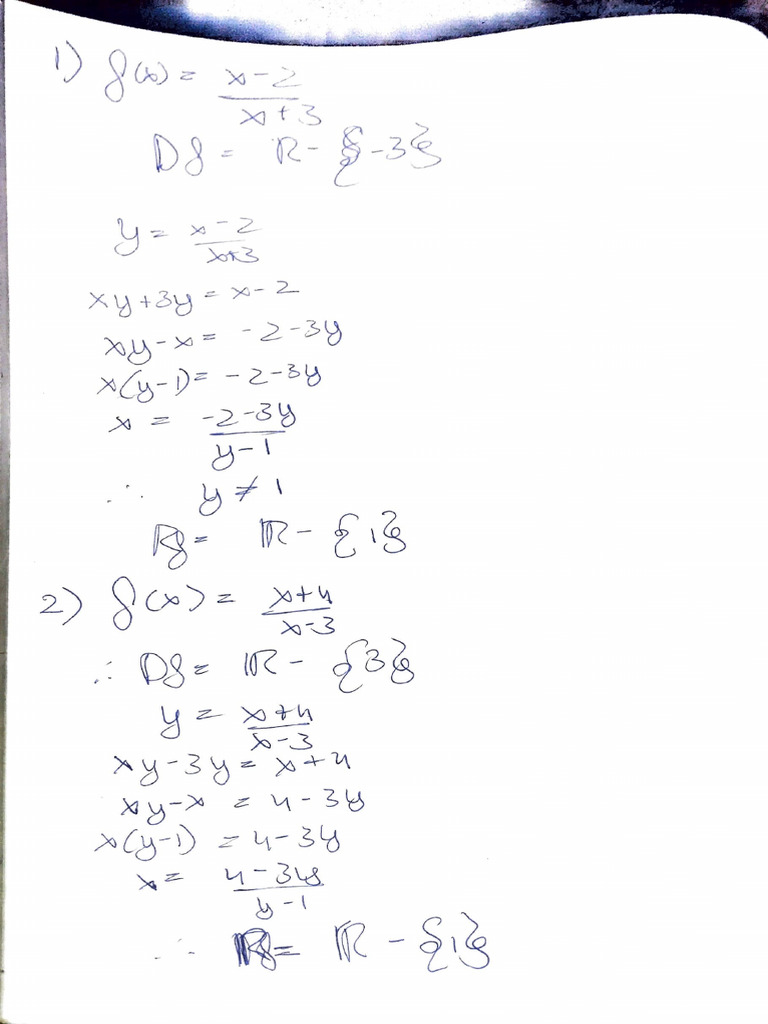 1) f(x) = (x-2)/(x+3)
Df = ℝ - {-3}
y = (x-2)/(x+3)
xy+3y = x-2
xy-x = -2-3y
x(y-1) = -2-3y
x = (-2-3y)/(y-1)
∴ y ≠ 1
Rf = ℝ - {1}
2) f(x) = (x+4)/(x-3)
∴ Df = ℝ - {3}
y = (x+4)/(x-3)
xy-3y = x+4
xy-x = 4-3y
x(y-1) = 4-3y
x = (4-3y)/(y-1)
∴ Rf = ℝ - {1}